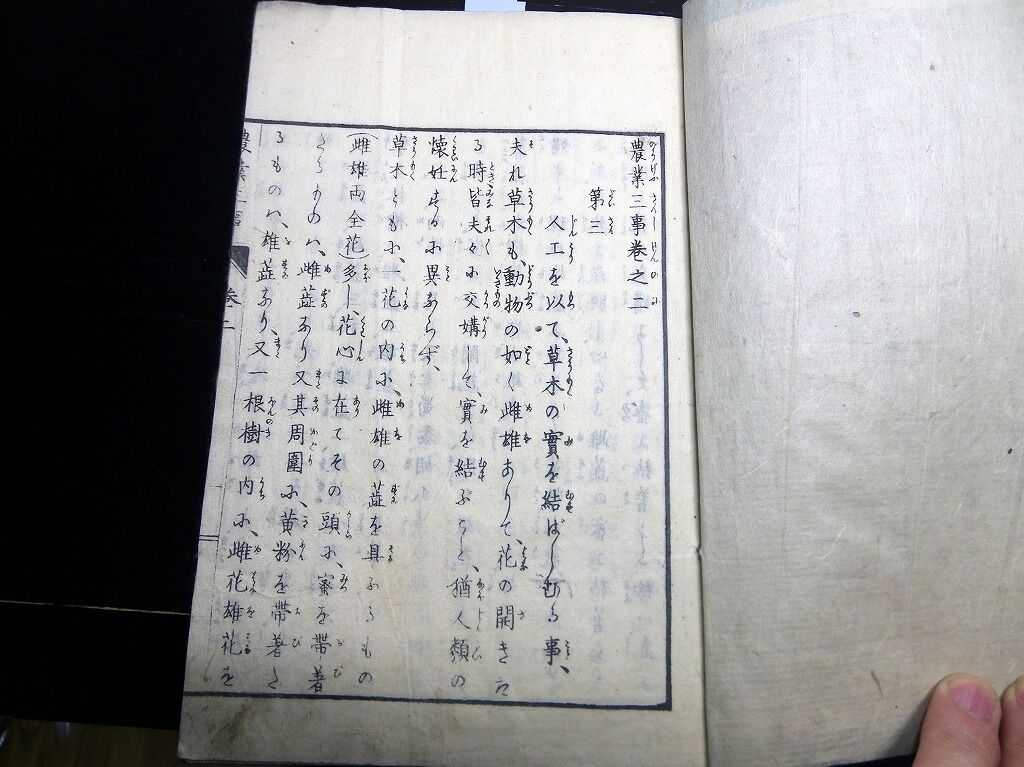 農業三事巻之二
第三
人工を以て、草木の實を結ばしむる事、
夫れ草木も、動物の如く雌雄ありて、花の開きた
る時皆夫々に交媾して、實を結ぶこと、猶人類の
懐妊するに異ならず、
草木ともに、一花の内に、雌雄の蕋を具ふるもの
(雌雄両全花)多し、花心に在てその頭に、蜜を帯著
るものハ、雄蕋あり、又一根樹の内に、雌花雄花を